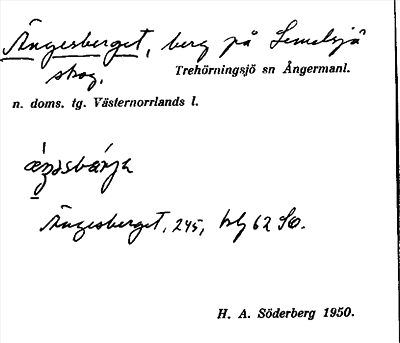 Ängesberget, berg på Lemelsjö
skog.
Trehörningsjö sn Ångermanl.
n. doms. tg. Västernorrlands l.
Ängesberget, 245, blg 62 SO.
H. A. Söderberg 1950.